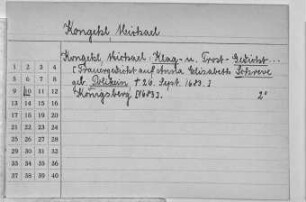 Kongehl Michael
Kongehl, Michael: Klag- u. Trost-Gedicht...
[Trauergedicht auf Anna Elisabeth Schreve
geb. Polikein † 26. Sept. 1683.]
Königsberg [1683]. 2°
1 2 3 4
5 6 7 8
9 10 11 12
13 14 15 16
17 18 19 20
21 22 23 24
25 26 27 28
29 30 31 32
33 34 35 36
37 38 39 40